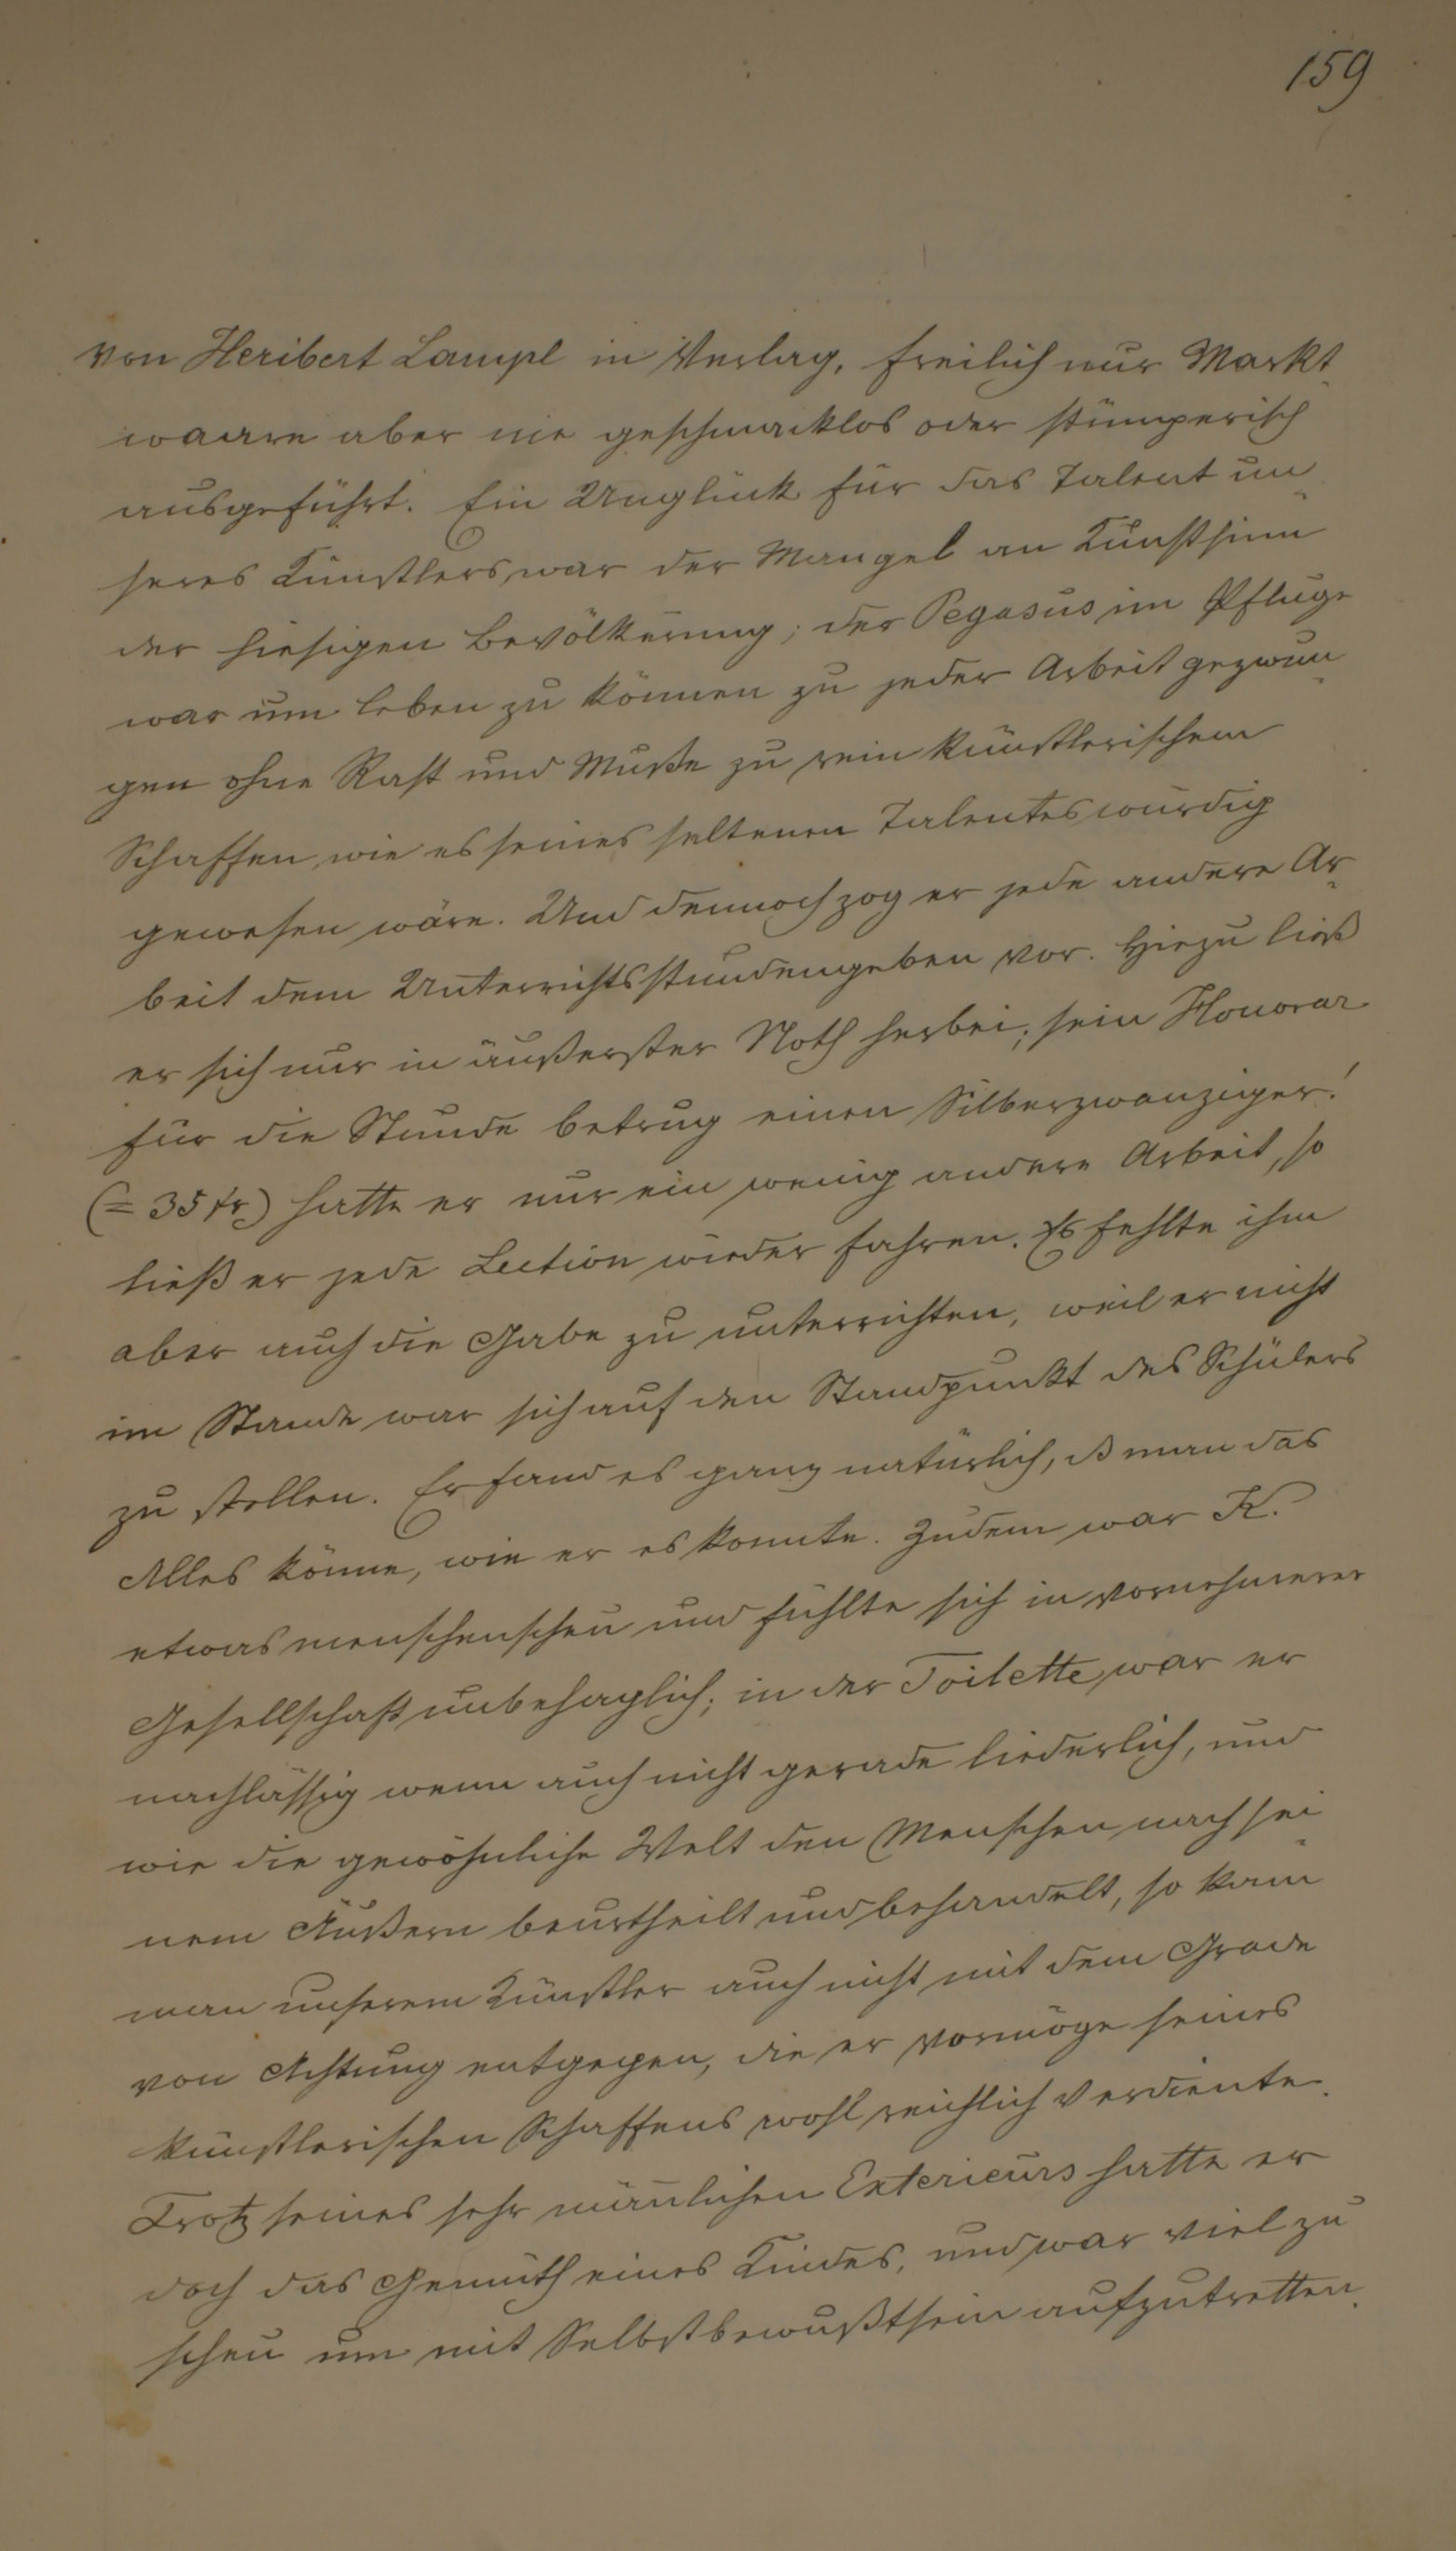 159
von Heribert Lampl in Verlag, freilich nur Markt-
waare aber nie geschmacklos oder stümperisch
ausgeführt. Ein Unglück für das Talent un-
seres Künstlers war der Mangel an Kunstsinn
der hiesigen Bevölkerung; der Pegasus im Pfluge
war um leben zu können zu jeder Arbeit gezwun-
gen ohne Rast und Muße zu rein künstlerischem
Schaffen wie es seines seltenen Talentes würdig
gewesen wäre. Und dennoch zog er jede andere Ar-
beit dem Unterrichtsstundengeben vor. Hiezu ließ
er sich nur in äußerster Noth herbei; sein Honorar
für die Stunde betrug einen Silberzwanziger!
(= 35 kr) hatte er nur ein wenig andere Arbeit, so
ließ er jede Lection wieder fahren. Es fehlte ihm
aber auch die Gabe zu unterrichten, weil er nicht
im Stande war sich auf den Standpunkt des Schülers
zu stellen. Er fand es ganz natürlich, ß man das
Alles könne, wie er es konnte. Zudem war K.
etwas menschenscheu und fühlte sich in vornehmerer
Gesellschaft unbehaglich; in der Toilette war er
nachlässig wenn auch nicht gerade liederlich, und
wie die gewöhnliche Welt den Menschen nach sei-
nem Äußern beurtheilt und behandelt, so kam
man unserem Künstler auch nicht mit dem Grade
von Achtung entgegen, die er vermöge seines
künstlerischen Schaffens wohl reichlich verdiente.
Trotz seines sehr männlichen Exterieurs hatte er
doch das Gemüth eines Kindes, und war viel zu
scheu um mit Selbstbewußtsein aufzutretten.